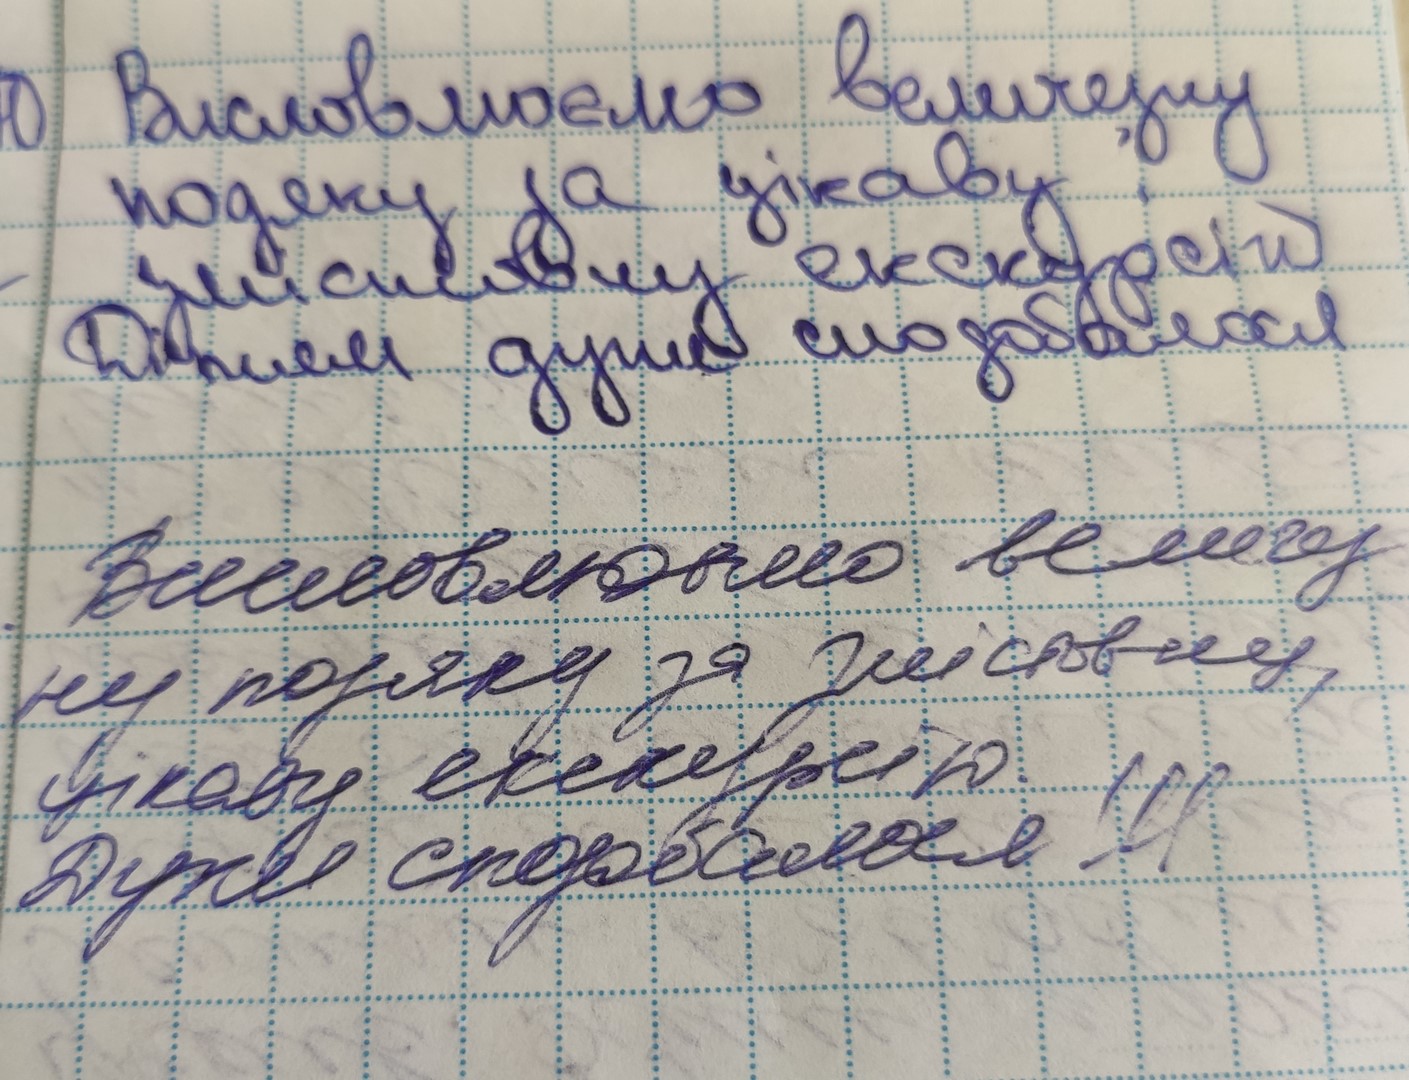 Висловлюємо величезну
подяку за цікаву,
змістовну екскурсій
Дітям дуже сподобалося
Висловлюємо величез
ну подяку за змістовну,
цікаву екскурсію.
Дуже сподобалося!!!